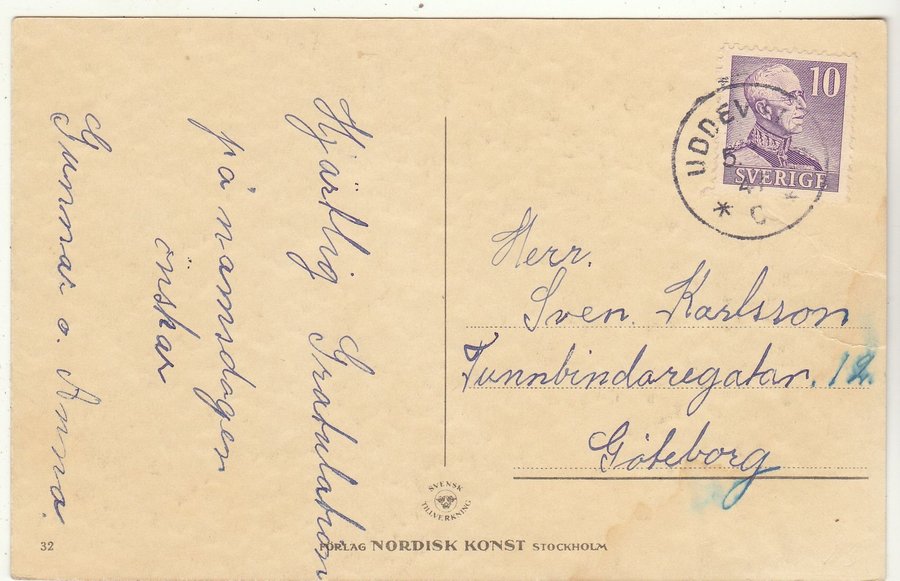 Hjärtlig Gratulation
på namsdagen
önskar
Gunnar o. Anna.
10
SVERIGE
UDDEV
5.
4
* C *
Herr.
Sven. Karlsson
Tunnbindaregatan. 12.
Göteborg
SVENSK
TILLVERKNING
32
FÖRLAG NORDISK KONST STOCKHOLM